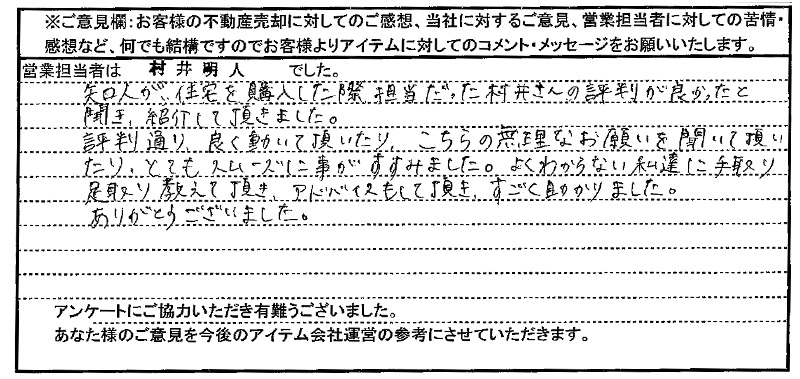 ※ご意見欄：お客様の不動産売却に対してのご感想、当社に対するご意見、営業担当者に対しての苦情・
感想など、何でも結構ですのでお客様よりアイテムに対してのコメント・メッセージをお願いいたします。
営業担当者は 村井明人 でした。
知人が、住宅を購入した際担当だった村井さんの評判が良かったと
聞き、紹介して頂きました。
評判通り、良く動いて頂いたり、こちらの無理なお願いを聞いて頂い
たり、とてもスムーズに事がすすみました。よくわからない私達に手取り
足取り教えて頂き、アドバイスもして頂き、すごく助かりました。
ありがとうございました。
アンケートにご協力いただき有難うございました。
あなた様のご意見を今後のアイテム会社運営の参考にさせていただきます。